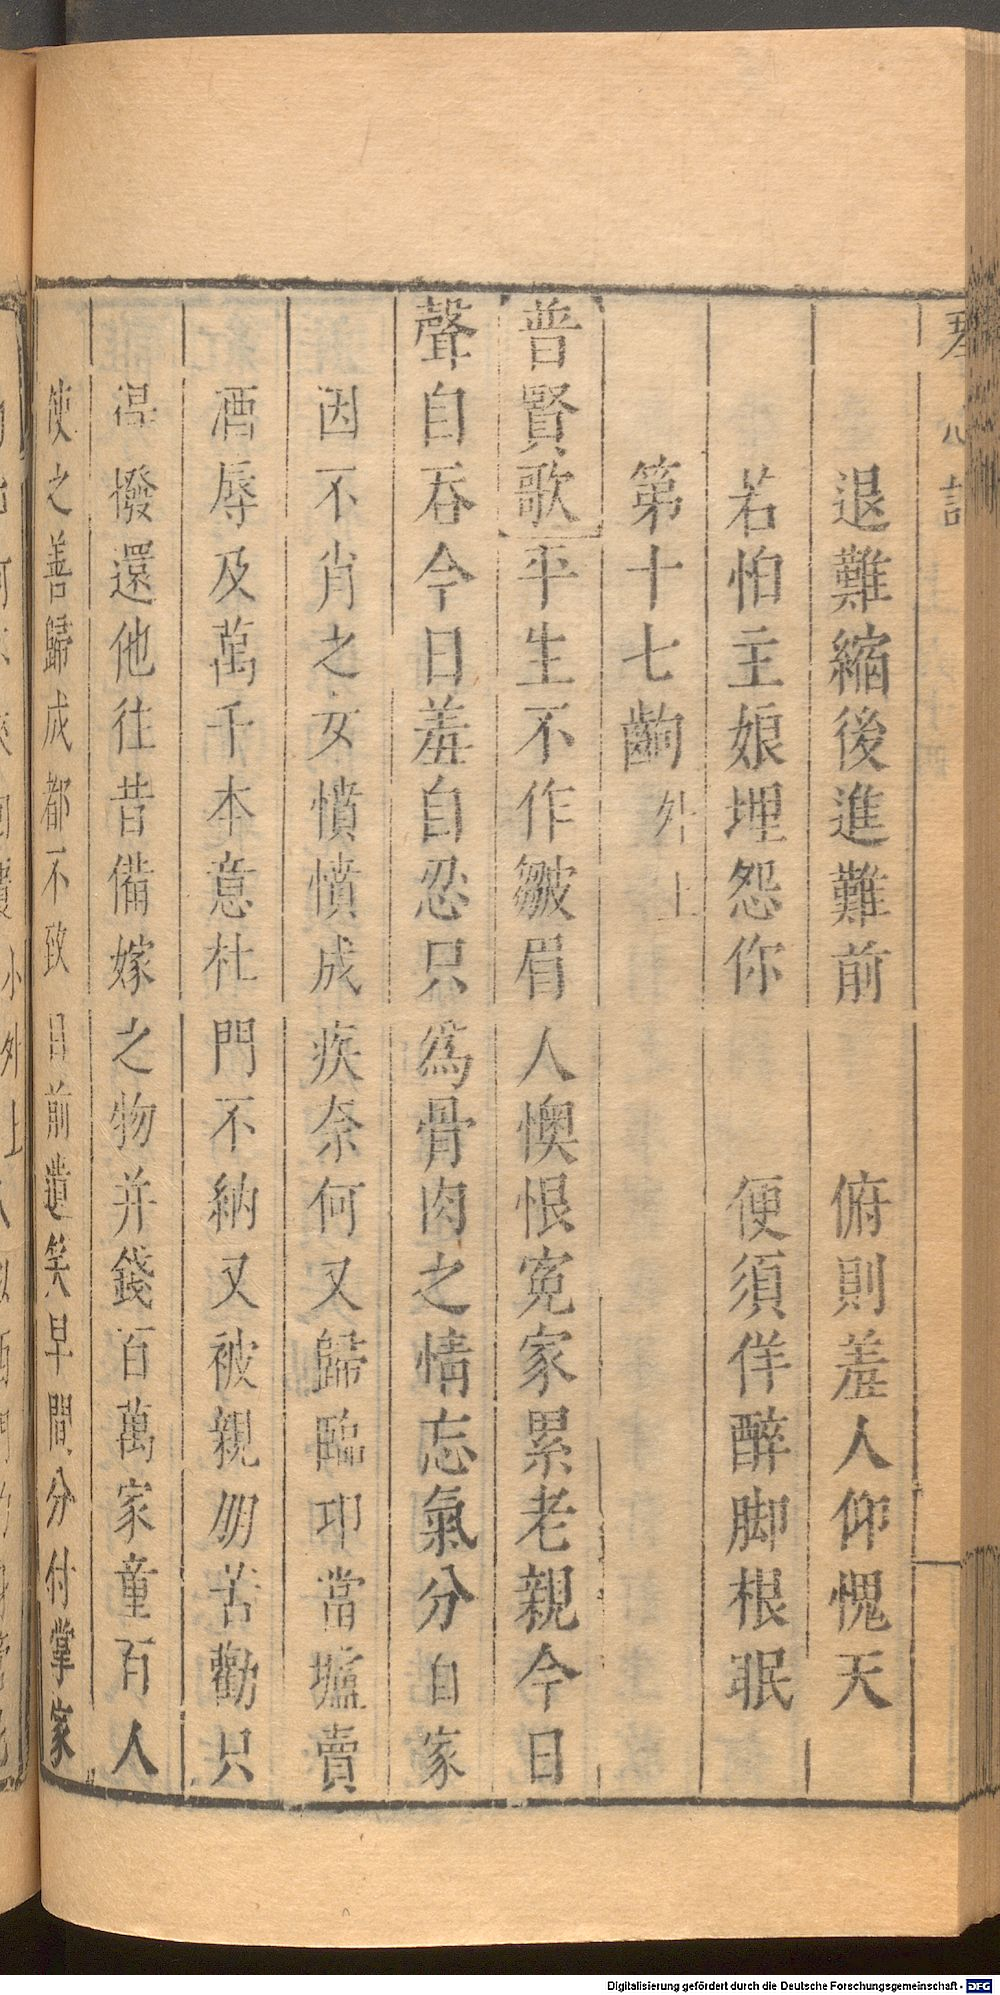 琴心記
退難縮後進難前 俯則羞人仰愧天
若怕主娘埋怨你 便須佯醉脚根眠
第十七齣 外上
普賢歌 平生不作皺眉人懊恨寃家累老親今日
聲自吞今日羞自忍只爲骨肉之情忘氣分自家
因不肖之女憤憤成疾奈何又歸臨邛當壚賣
酒辱及萬千本意杜門不納又被親朋苦勸只
得撥還他往昔備嫁之物并錢百萬家童百人
使之善歸成都不致目前遺笑早間分付掌家
Digitalisierung gefördert durch die Deutsche Forschungsgemeinschaft - DFG